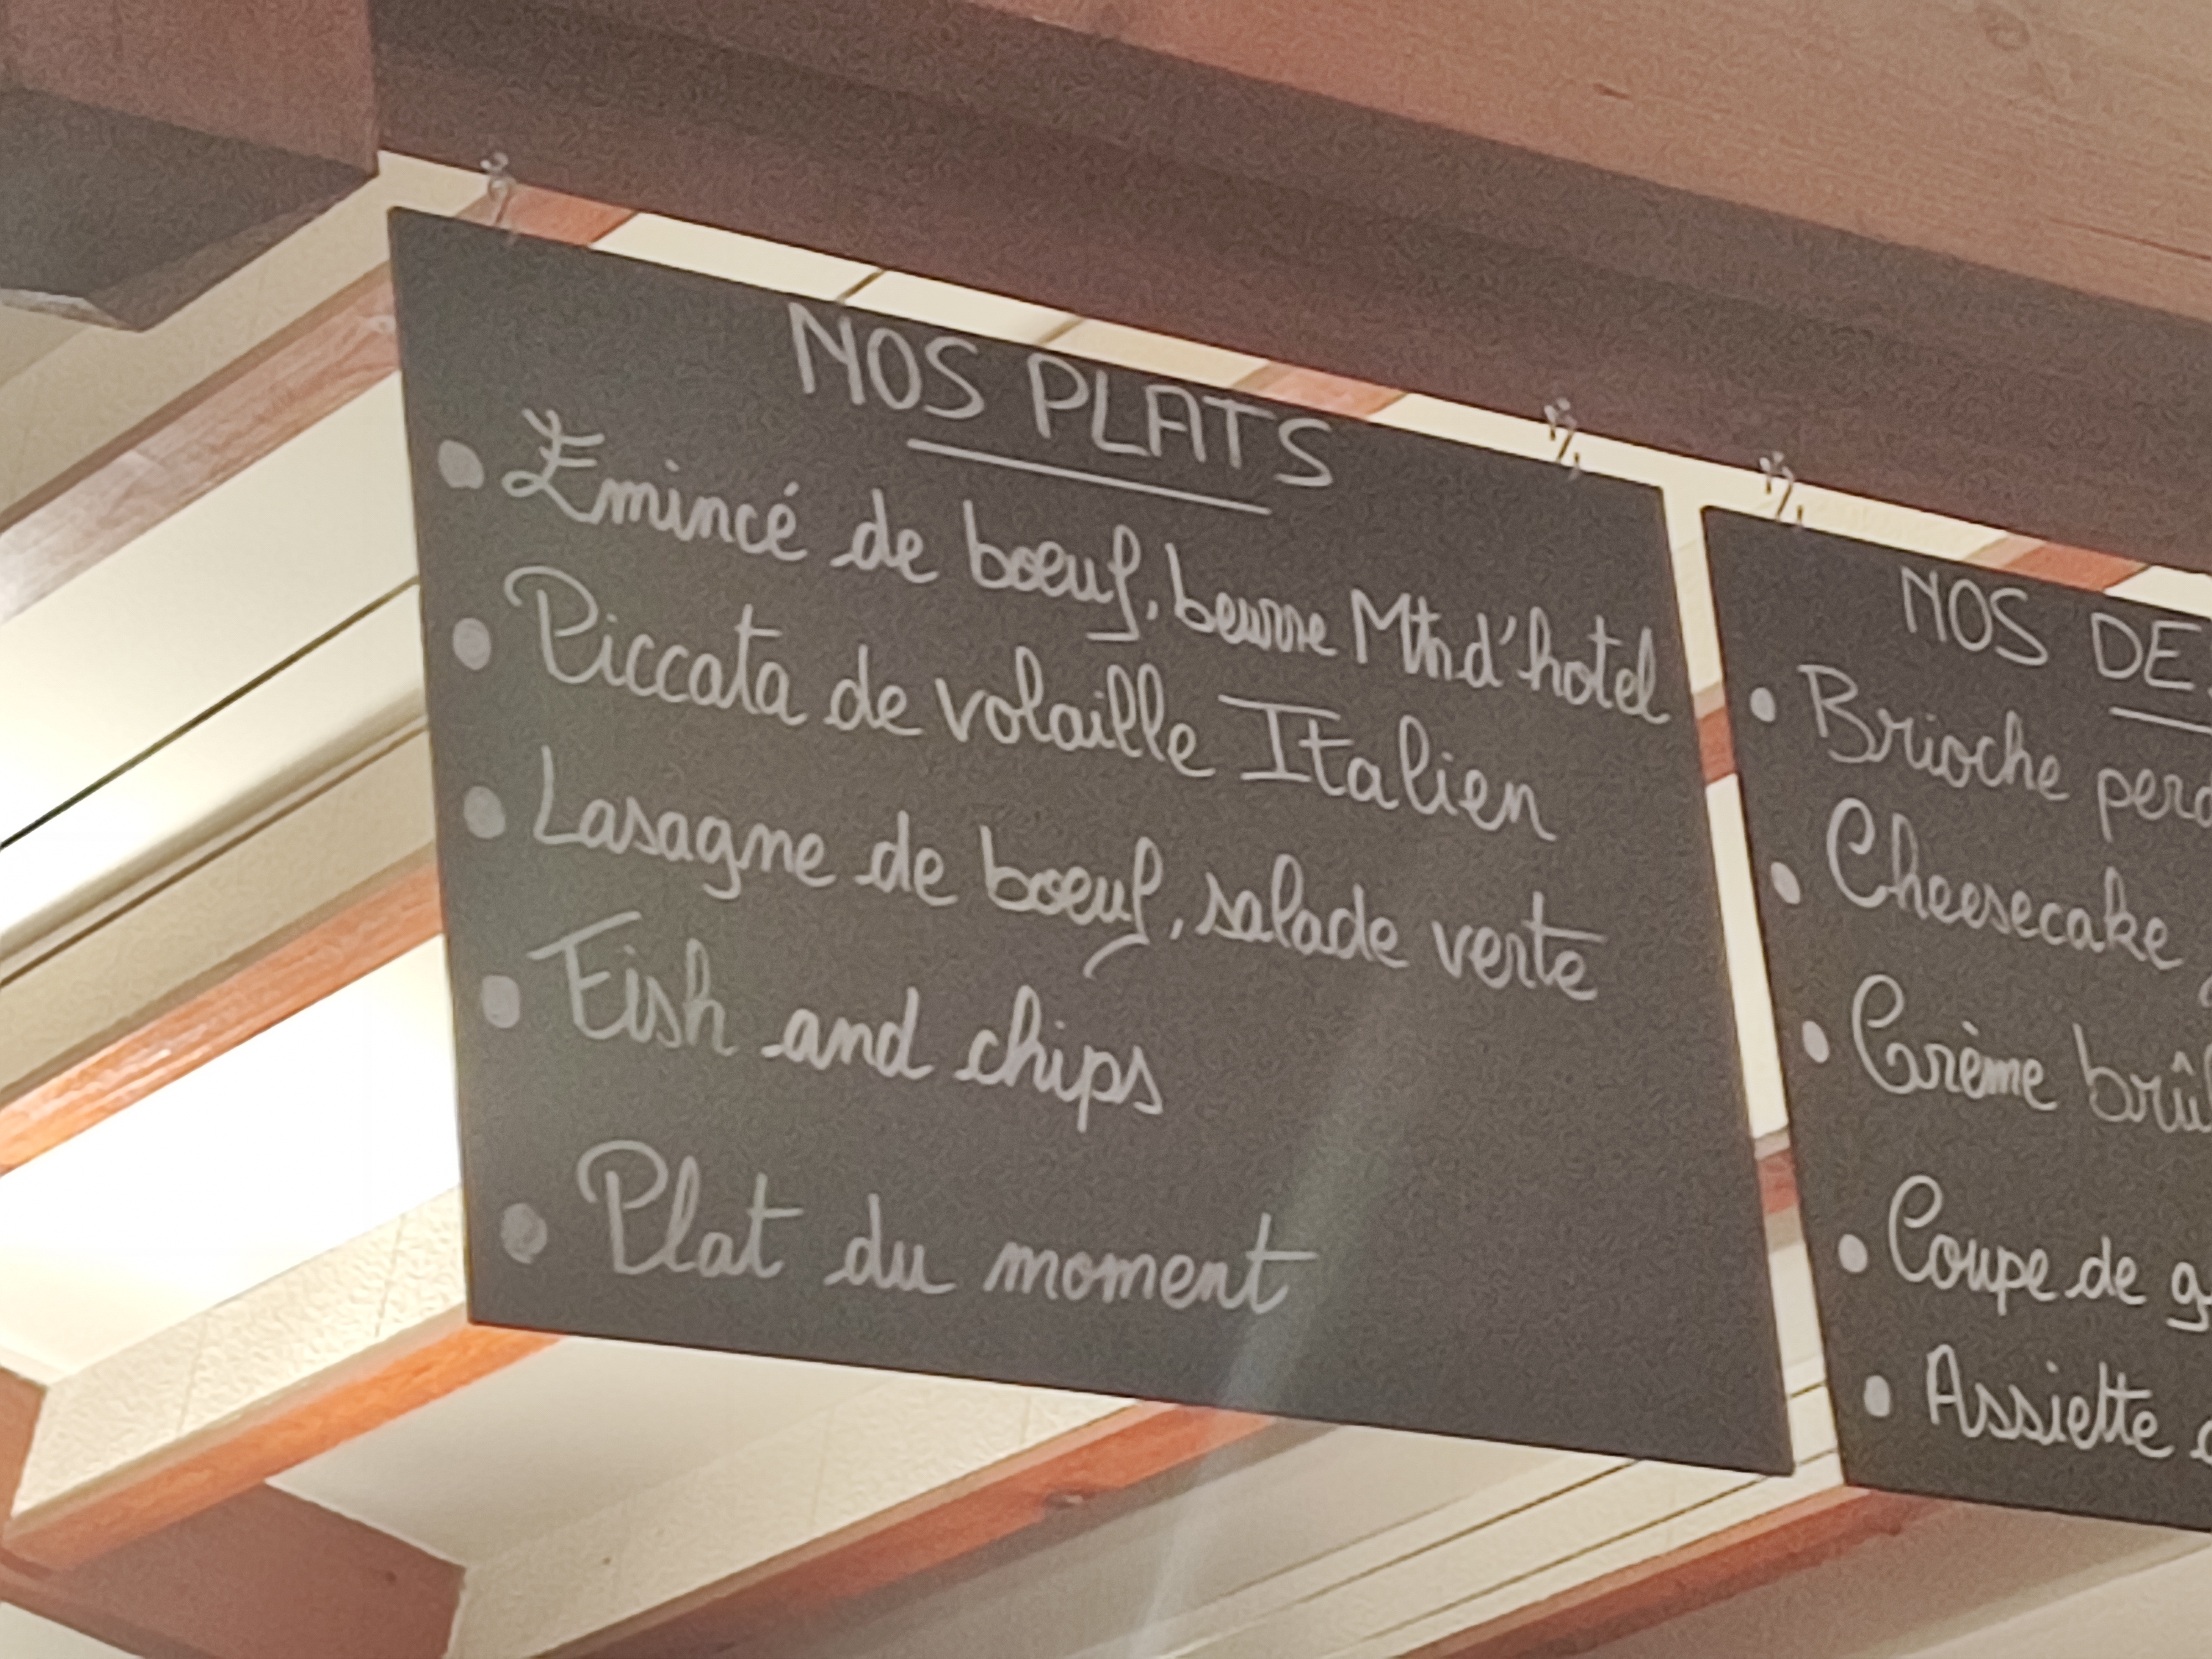 NOS PLATS
• Emincé de boeuf, beurre Mtn d'hotel
• Piccata de volaille Italien
• Lasagne de boeuf, salade verte
• Fish and chips
• Plat du moment
NOS DE
• Brioche perd
• Cheesecake
• Crème brûl
• Coupe de g
• Assiette